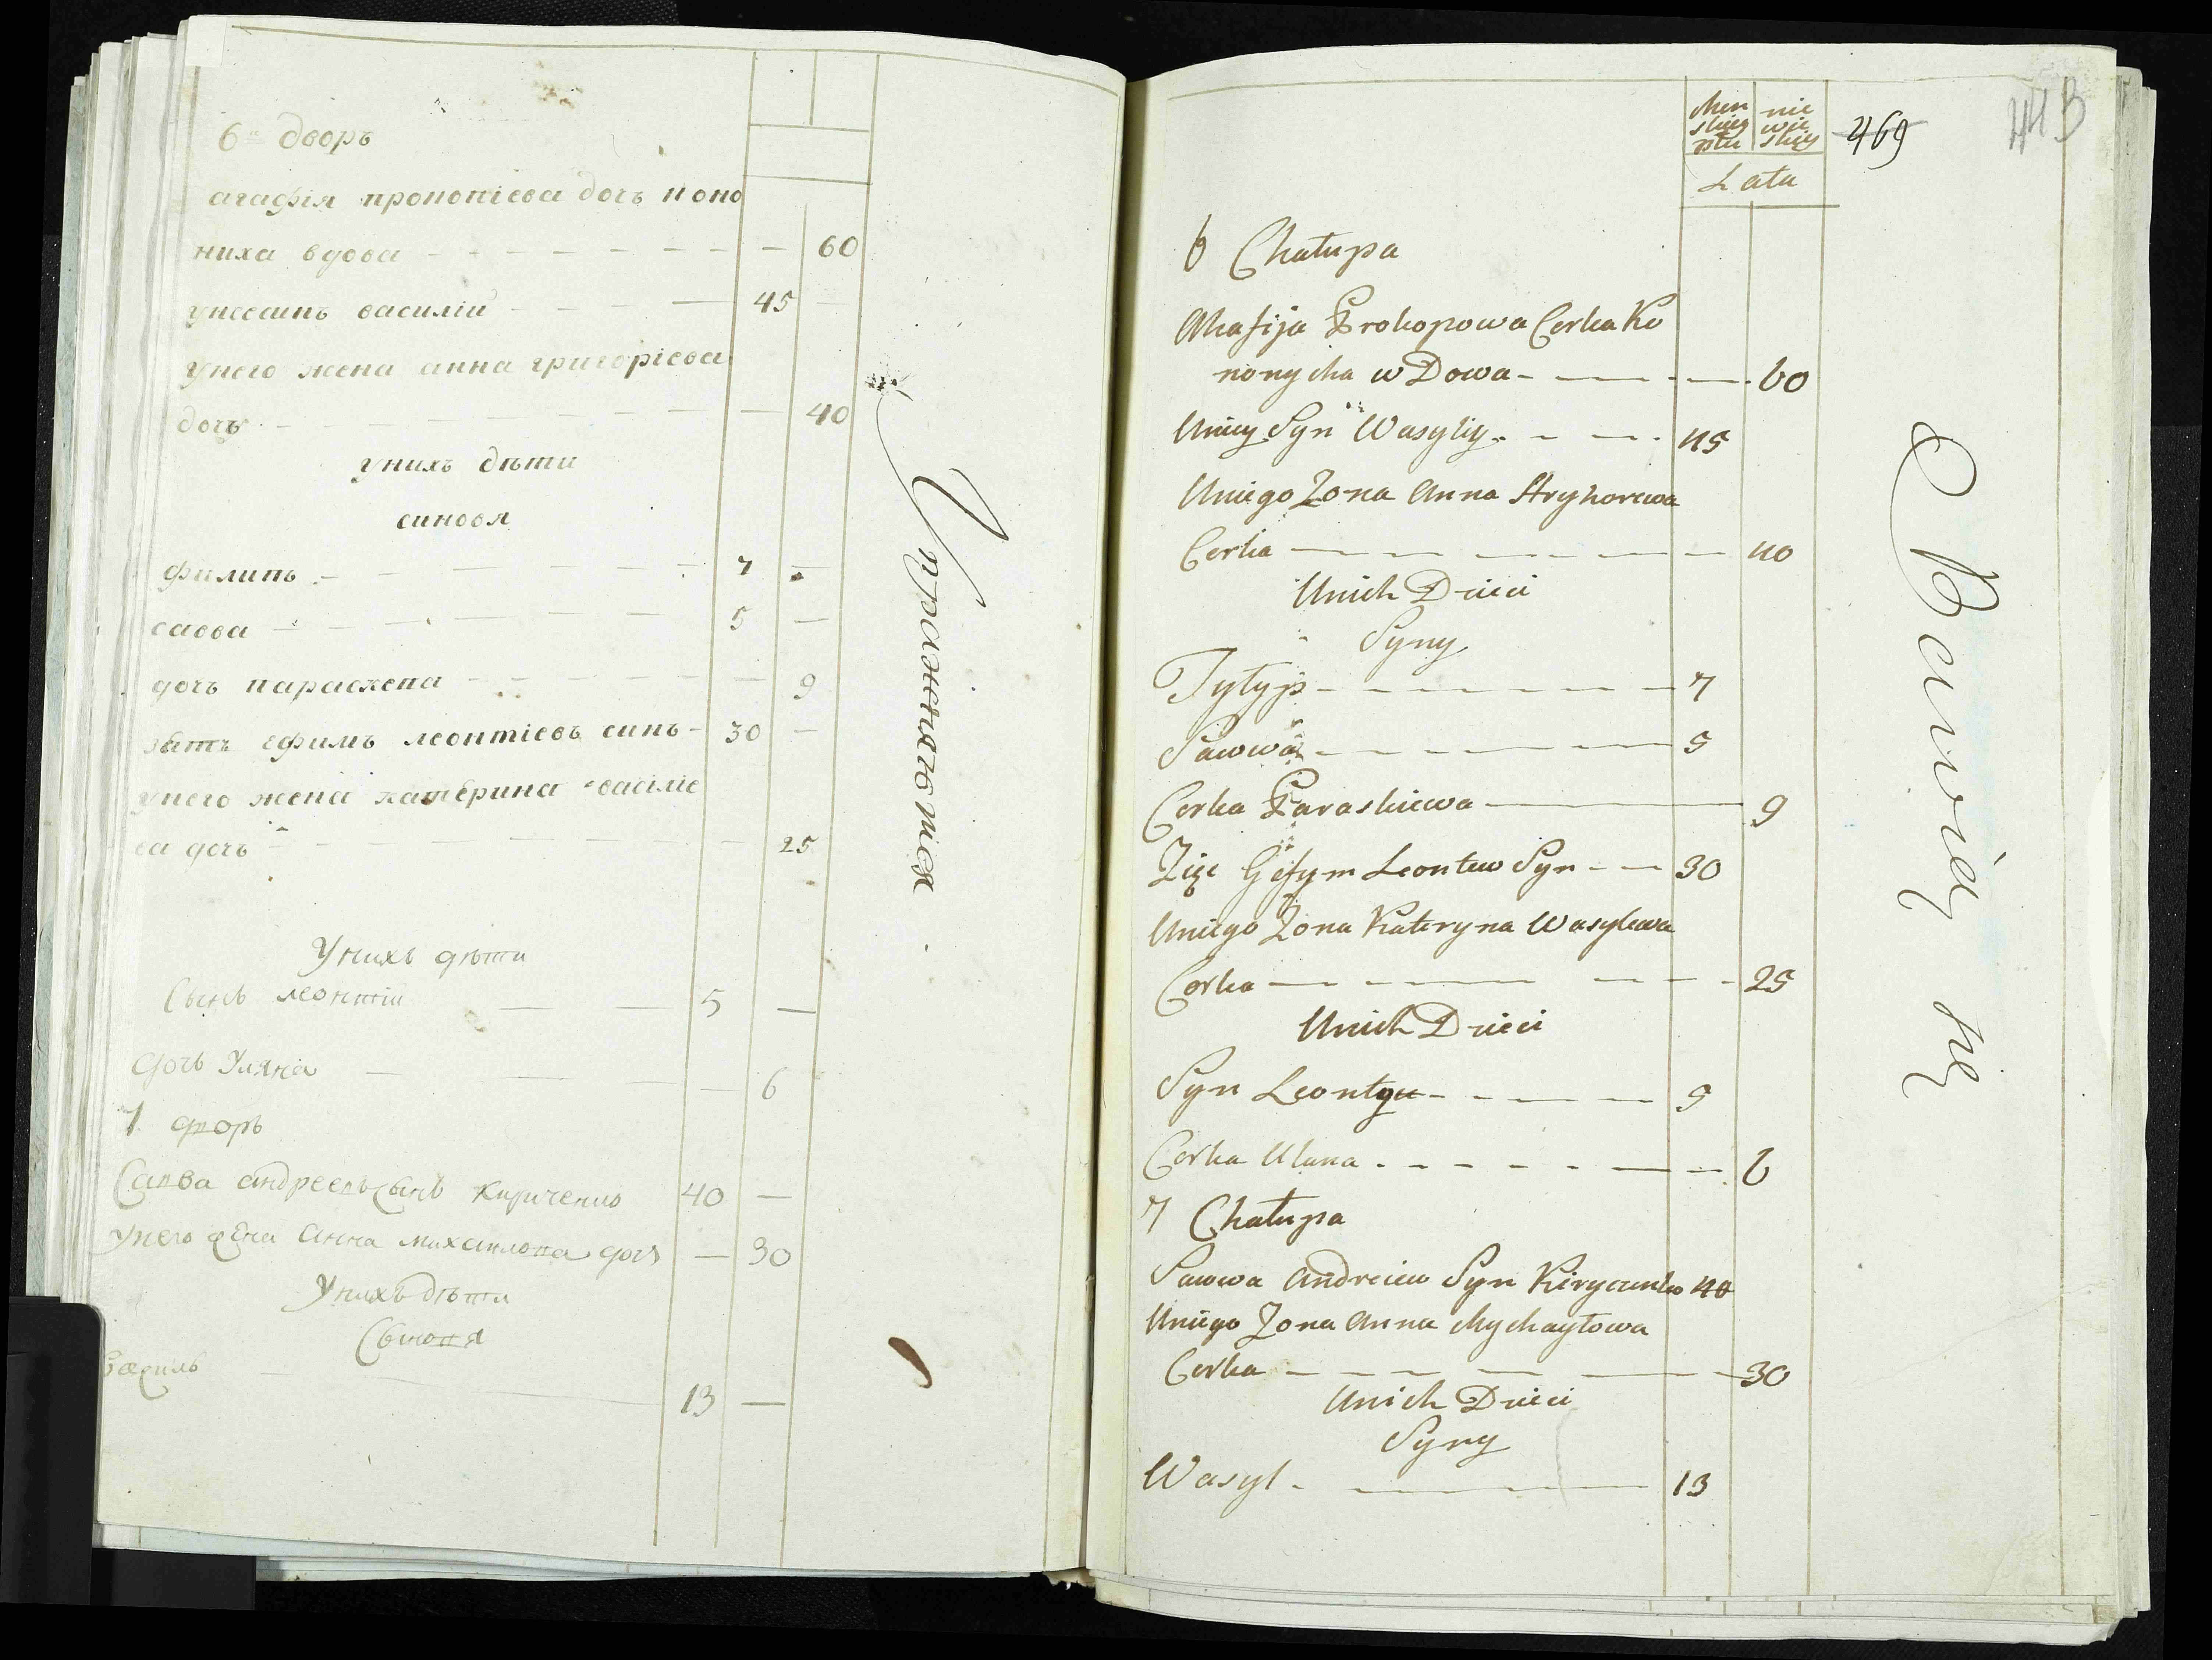 6й дворъ
агафия прокопиева дочъ коно
ниха вдова — 60
унеесинъ василии — 45 —
унего жена анна григориева
дочъ — 40
унихъ дѣти
синовя
филипъ — 7 —
савва — 5 —
дочъ параскева — 9
зять ефимъ леонтиевъ синъ — 30 —
унего жена катерина василие
ва дочъ — 25
Унихъ дѣти
Сынъ леонтіи — 5 —
дочъ Уляна — 6
7 дворъ
Савва андреевъ Сынъ Кириченко 40 —
унего жена анна михаилова дочъ — 30
Унихъ дѣти
Сыновя
Василь — 13 —
Упражняютися
Men skiey płci
nie wie skiey
Lata
469
443
6 Chałupa
Ahafija Prokopowa Corka Ko
nonycha wDowa — 60
Uniey Syn Wasyliy — 45
Uniego Zona Anna Hryhorewa
Corka — 40
Unich Dzieci
Syny
Fyłyp — 7
Sawwa — 5
Corka Paraskiewa — 9
Zięc Gefym Leontew Syn — 30
Uniego Zona Kateryna Wasylewa
Corka — 25
Unich Dzieci
Syn Leontyu — 5
Corka Ulana — 6
7 Chałupa
Sawwa Andreiew Syn Kiryczenko 40
Uniego Zona Anna Mychayłowa
Corka — 30
Unich Dzieci
Syny
Wasyl — 13
Bawią się